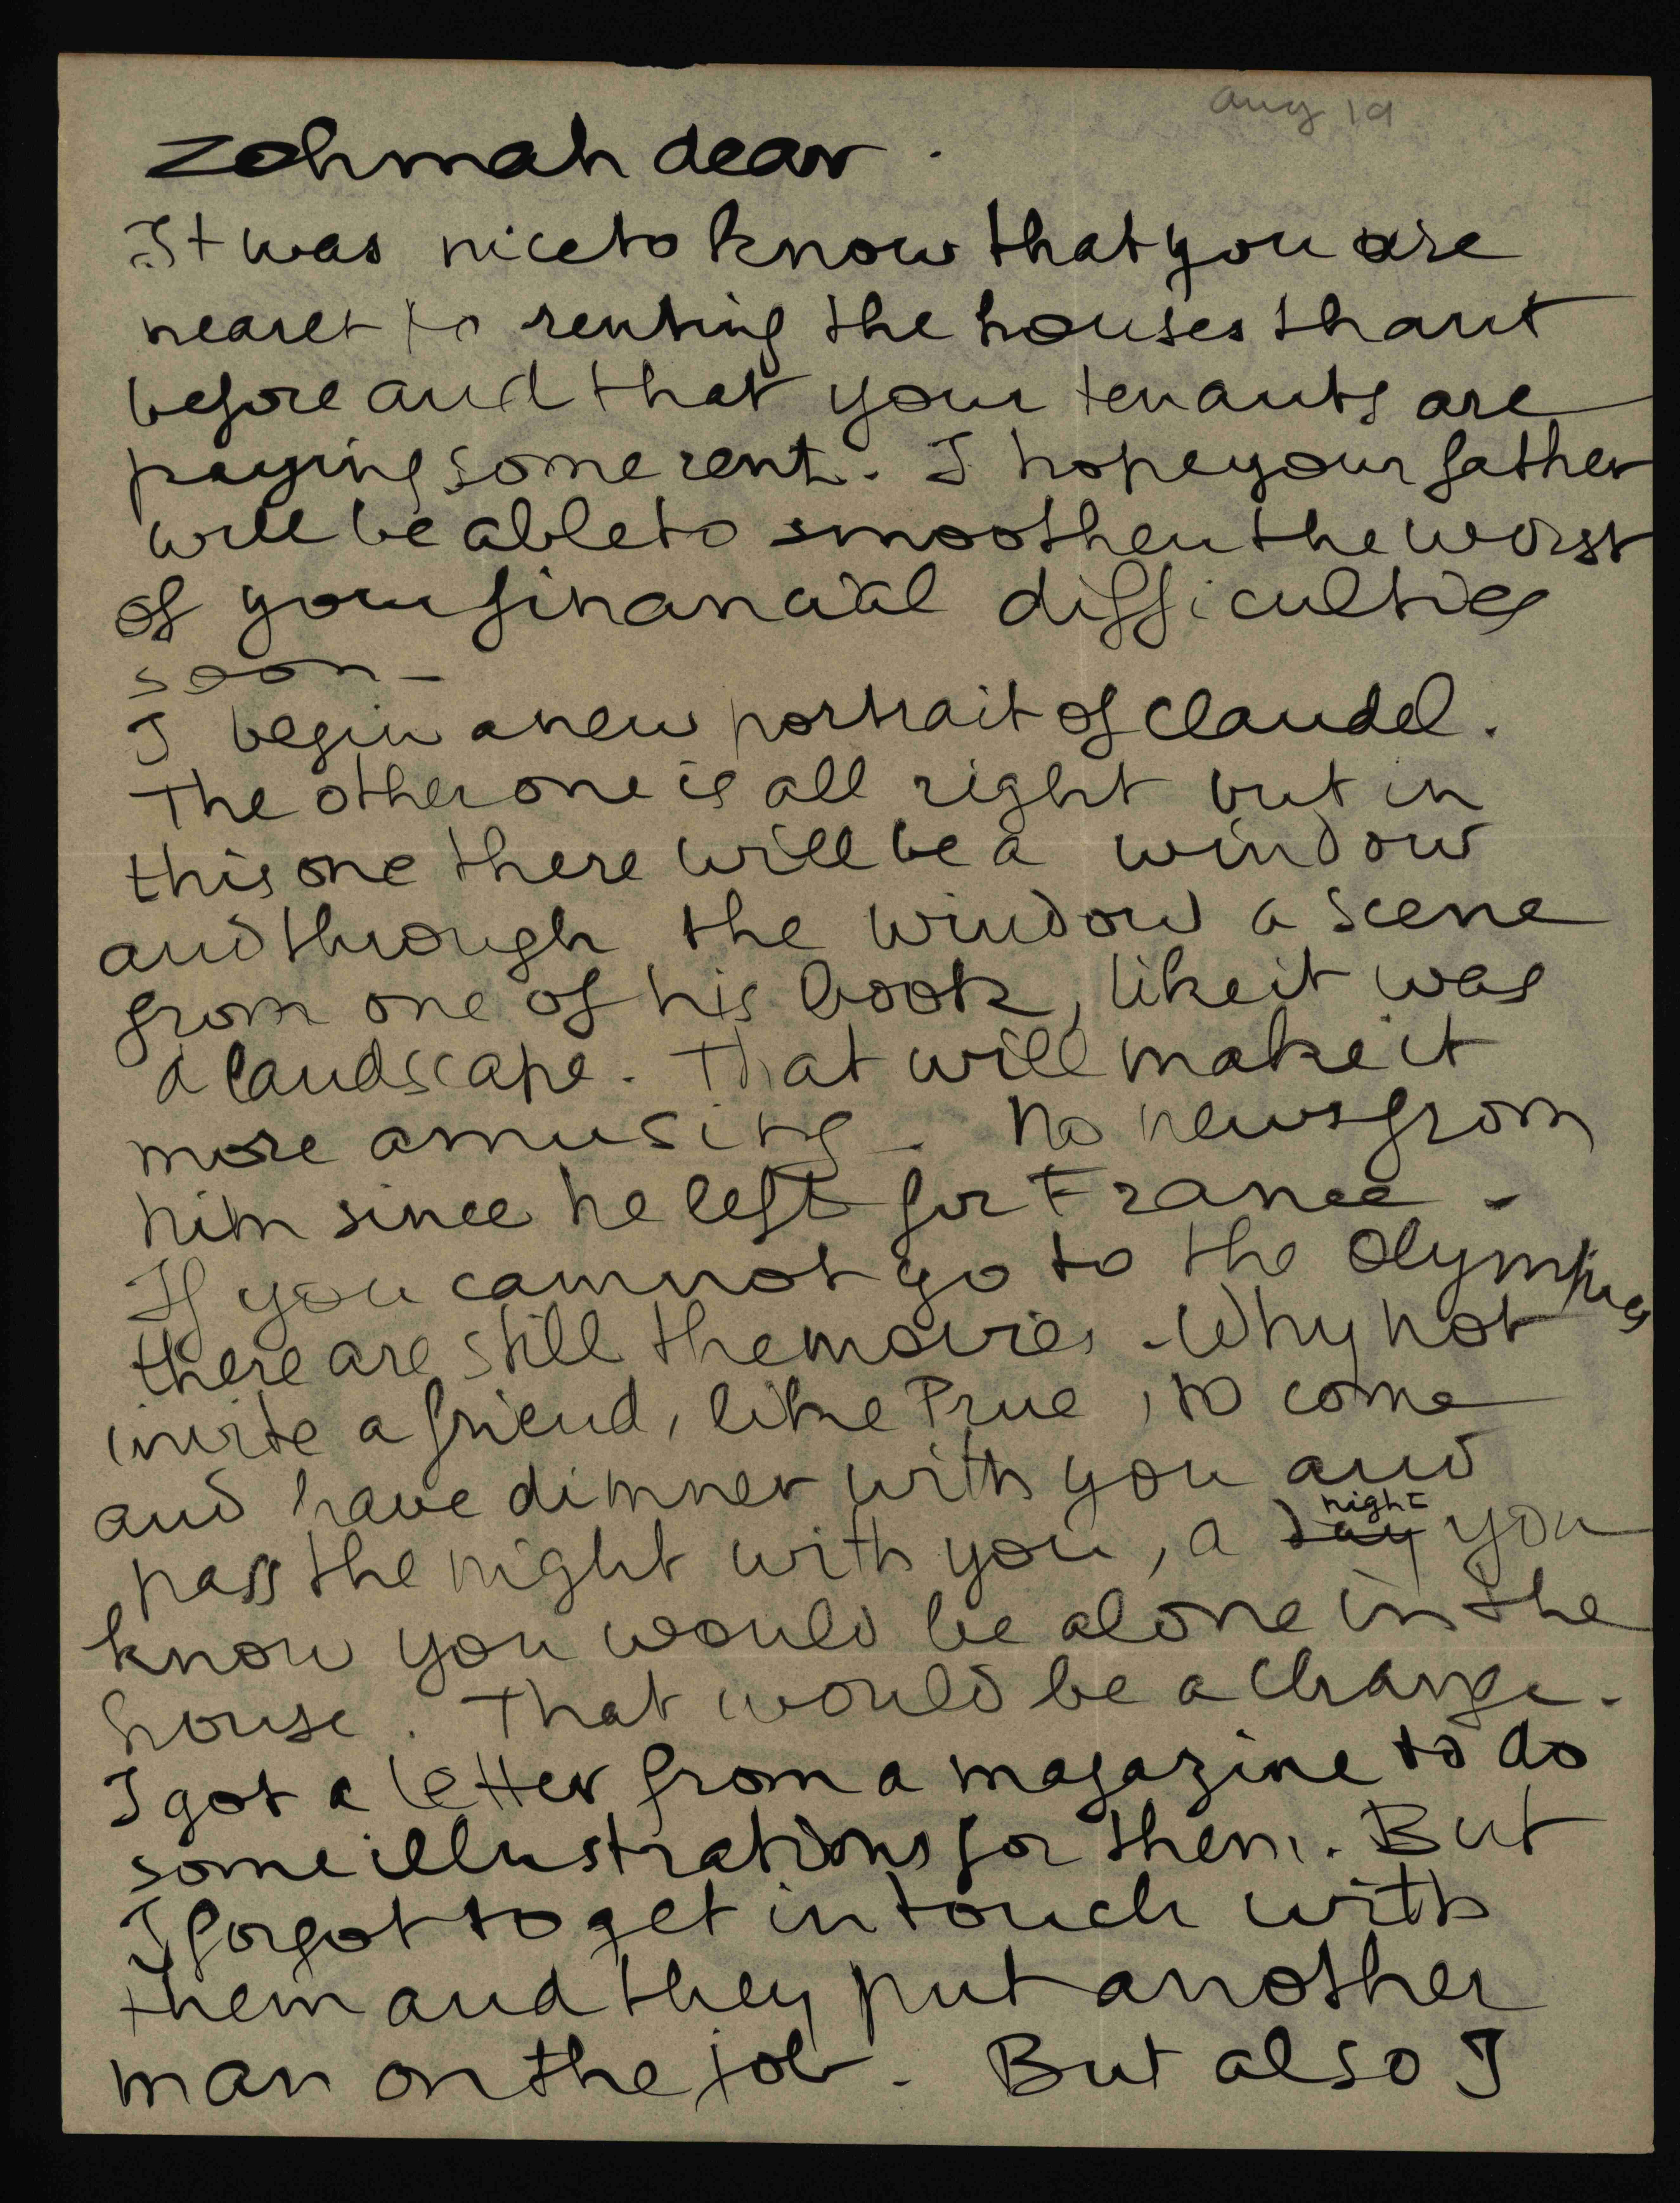 Aug 19
Zohmah dear.
It was nice to know that you are
nearer to renting the houses thant
before and that your tenants are
paying some rent. I hope your father
will be able to smoothen the worst
of your financial difficulties
soon -
I begin a new portrait of Claudel.
The other one is all right but in
this one there will be a window
and through the window a scene
from one of his book, like it was
a landscape. That will make it
more amusing - No news from
him since he left for France -
If you camnot go to the Olympics
there are still the movies - Why not
invite a friend, like Prue, to come
and have dimner with you and
pass the night with you, a day night you
know you would be alone in the
house. That would be a change.
I got a letter from a magazine to do
some illustrations for them. But
I forgot to get in touch with
them and they put another
man on the job - But also I